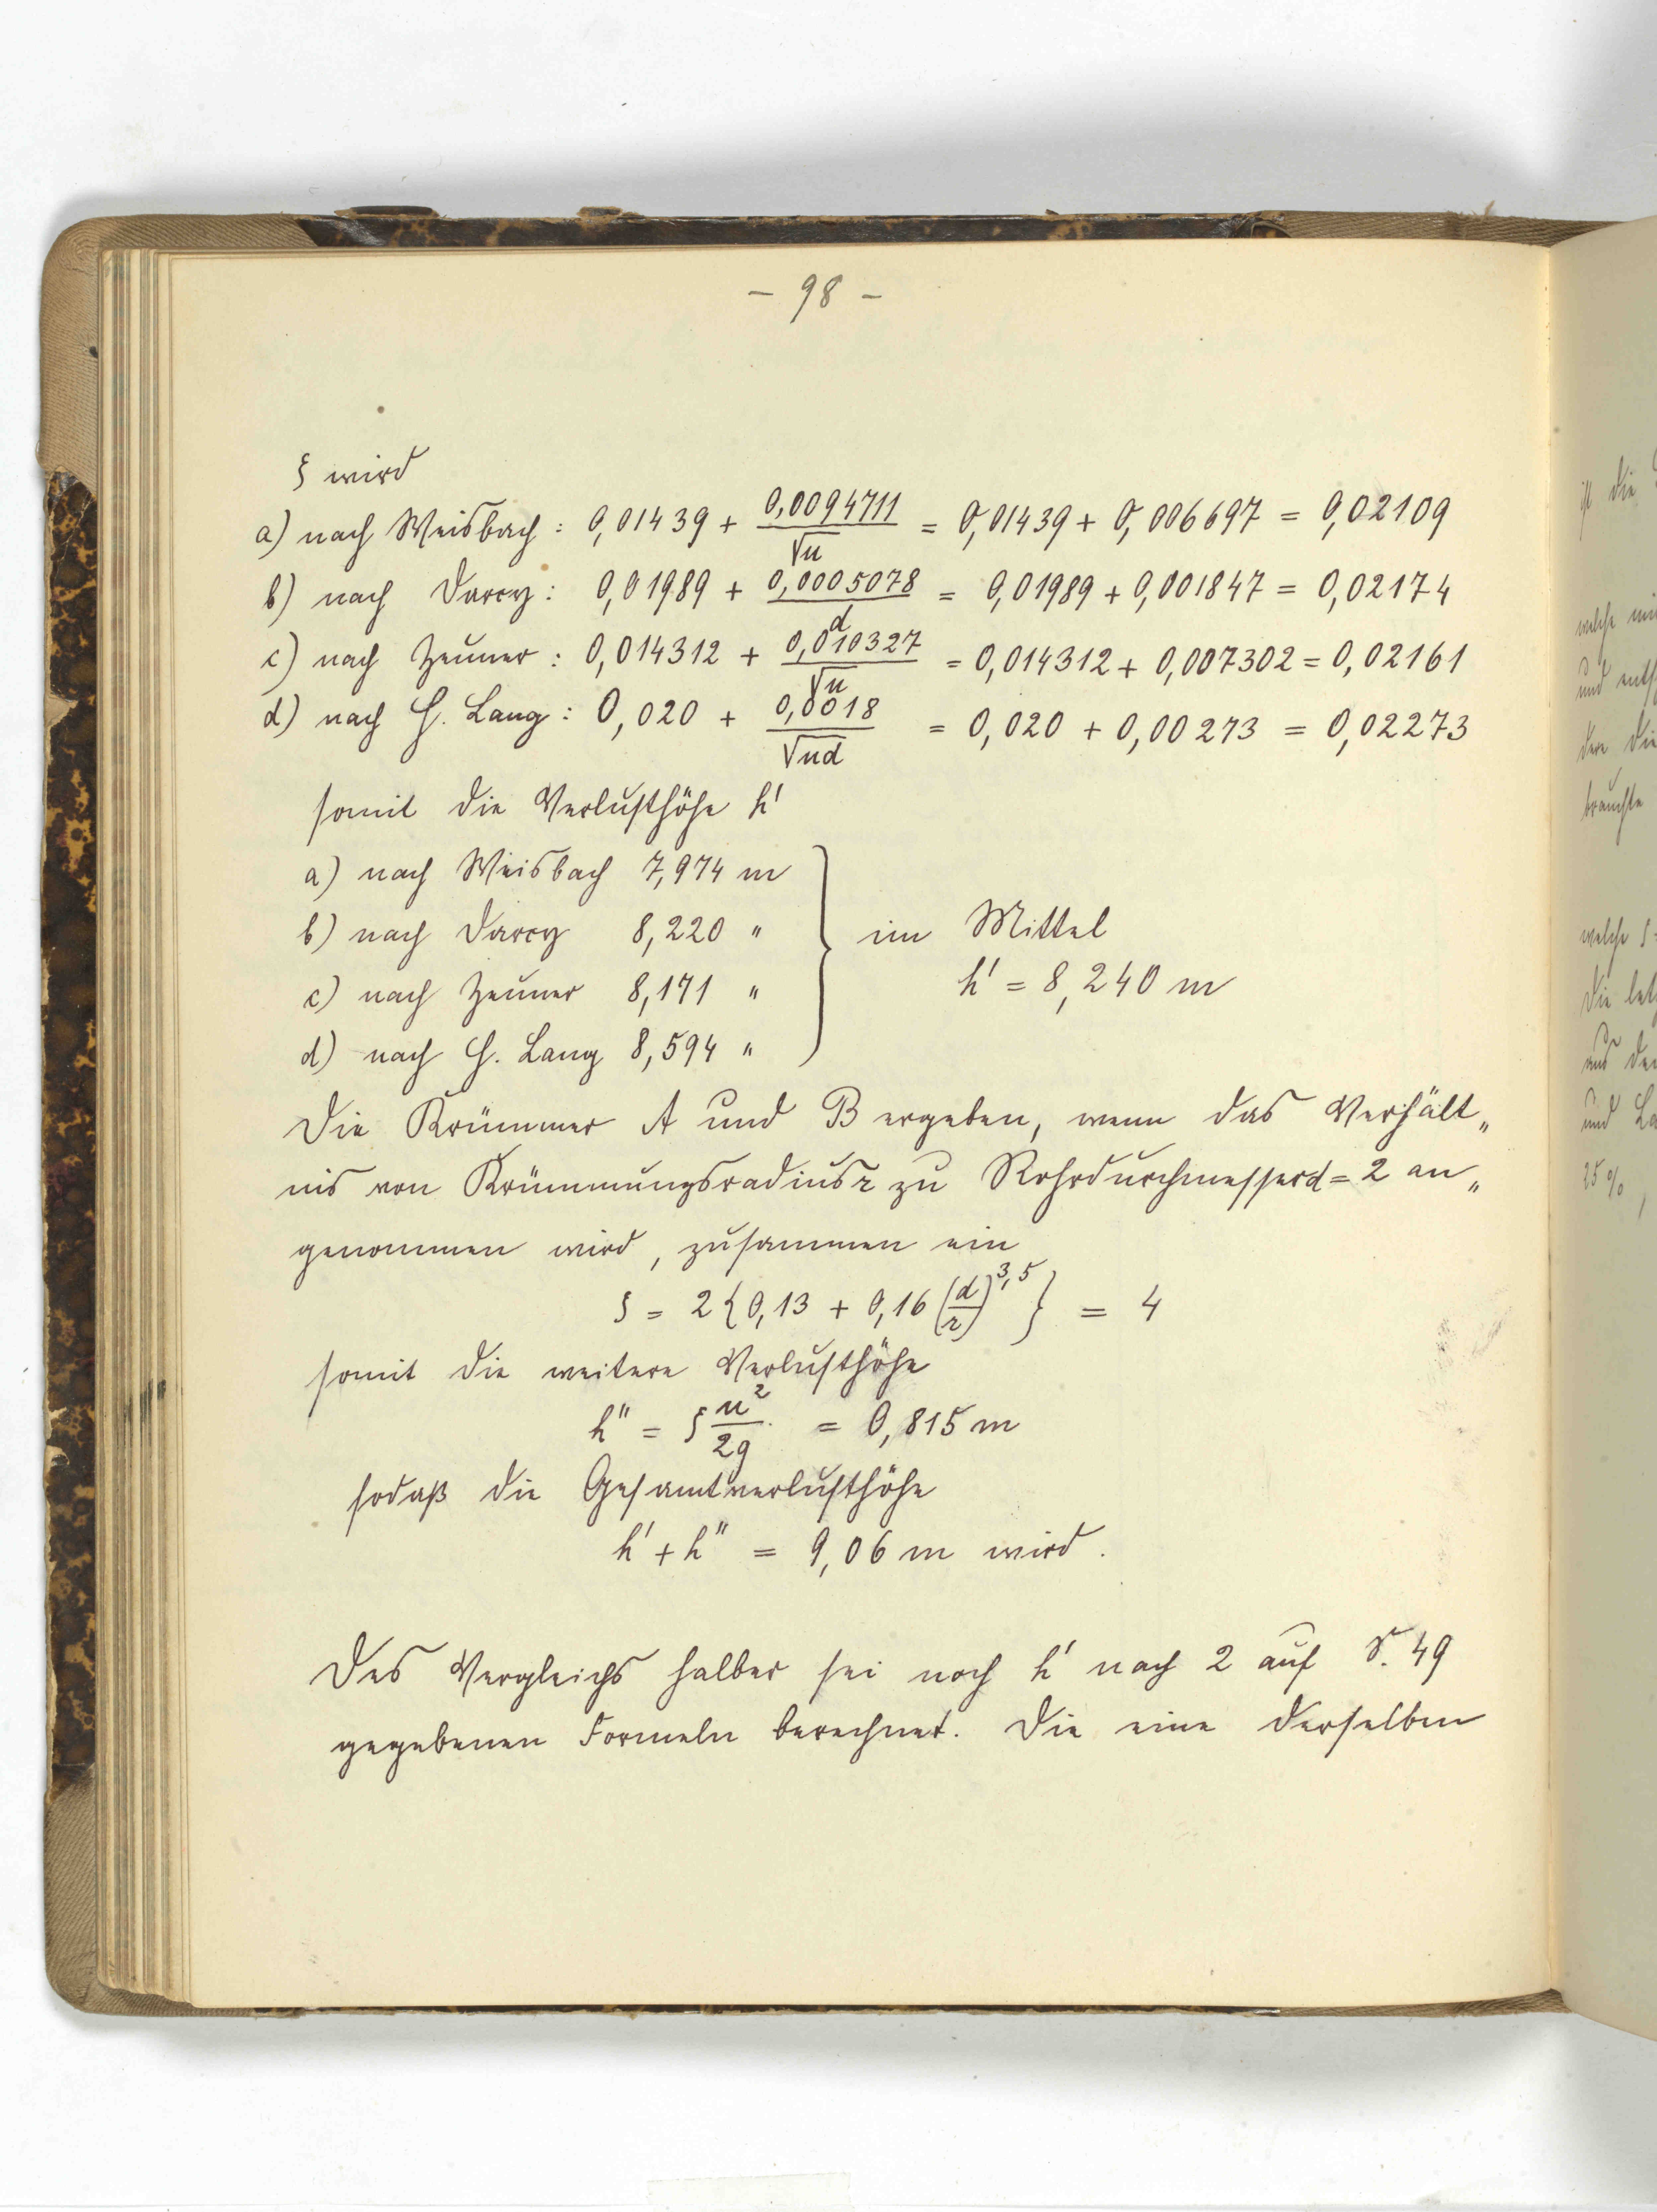 – 98 –
ξ wird
a) nach Weisbach: 0,01439 + 0,0094711/√u = 0,01439 + 0,006697 = 0,02109
b) nach Darcy: 0,01989 + 0,0005078/d = 0,01989 + 0,001847 = 0,02174
c) nach Zeuner: 0,014312 + 0,010327/√u = 0,014312 + 0,007302 = 0,02161
d) nach H. Lang: 0,020 + 0,0018/√ud = 0,020 + 0,00273 = 0,02273
somit die Verlusthöhe h'
a) nach Weisbach 7,974 m
b) nach Darcy 8,220 "
c) nach Zeuner 8,171 "
d) nach H. Lang 8,594 "
im Mittel
h' = 8,240 m
Die Krümmer A und B ergeben, wenn das Verhält„
nis von Krümmungsradius r zu Rohrdurchmesser d = 2 an„
genommen wird, zusammen ein
ξ = 2{0,13 + 0,16 (d/r)^3,5} = 4
somit die weitere Verlusthöhe
h" = ξ u²/2g = 0,815 m
sodaß die Gesamtverlusthöhe
h' + h" = 9,06 m wird.
Des Vergleichs halber sei noch h' nach 2 auf S. 49
gegebenen Formeln berechnet. Die eine derselben
ist die
welche
und
brauchte
welche
Die
aus
und
25 %,